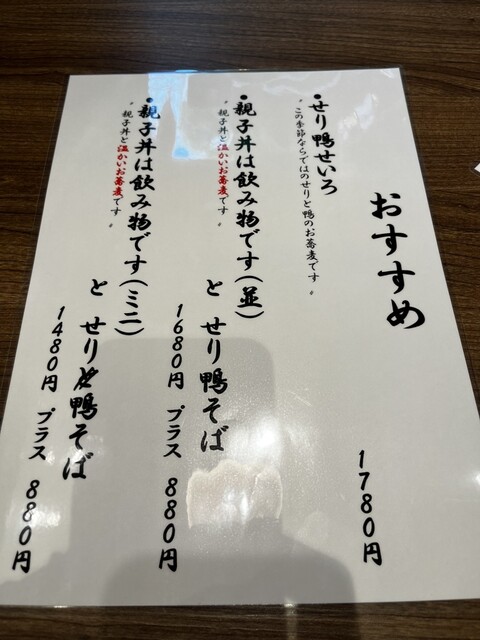 おすすめ
・せり鴨せいろ
〃この季節ならではのせりと鴨のお蕎麦です〃
1780円
・親子丼は飲み物です(並)
〃親子丼と温かいお蕎麦です〃
と せり鴨そば
1680円 プラス 880円
・親子丼は飲み物です(ミニ)
〃親子丼と温かいお蕎麦です〃
と せりと鴨そば
1480円 プラス 880円